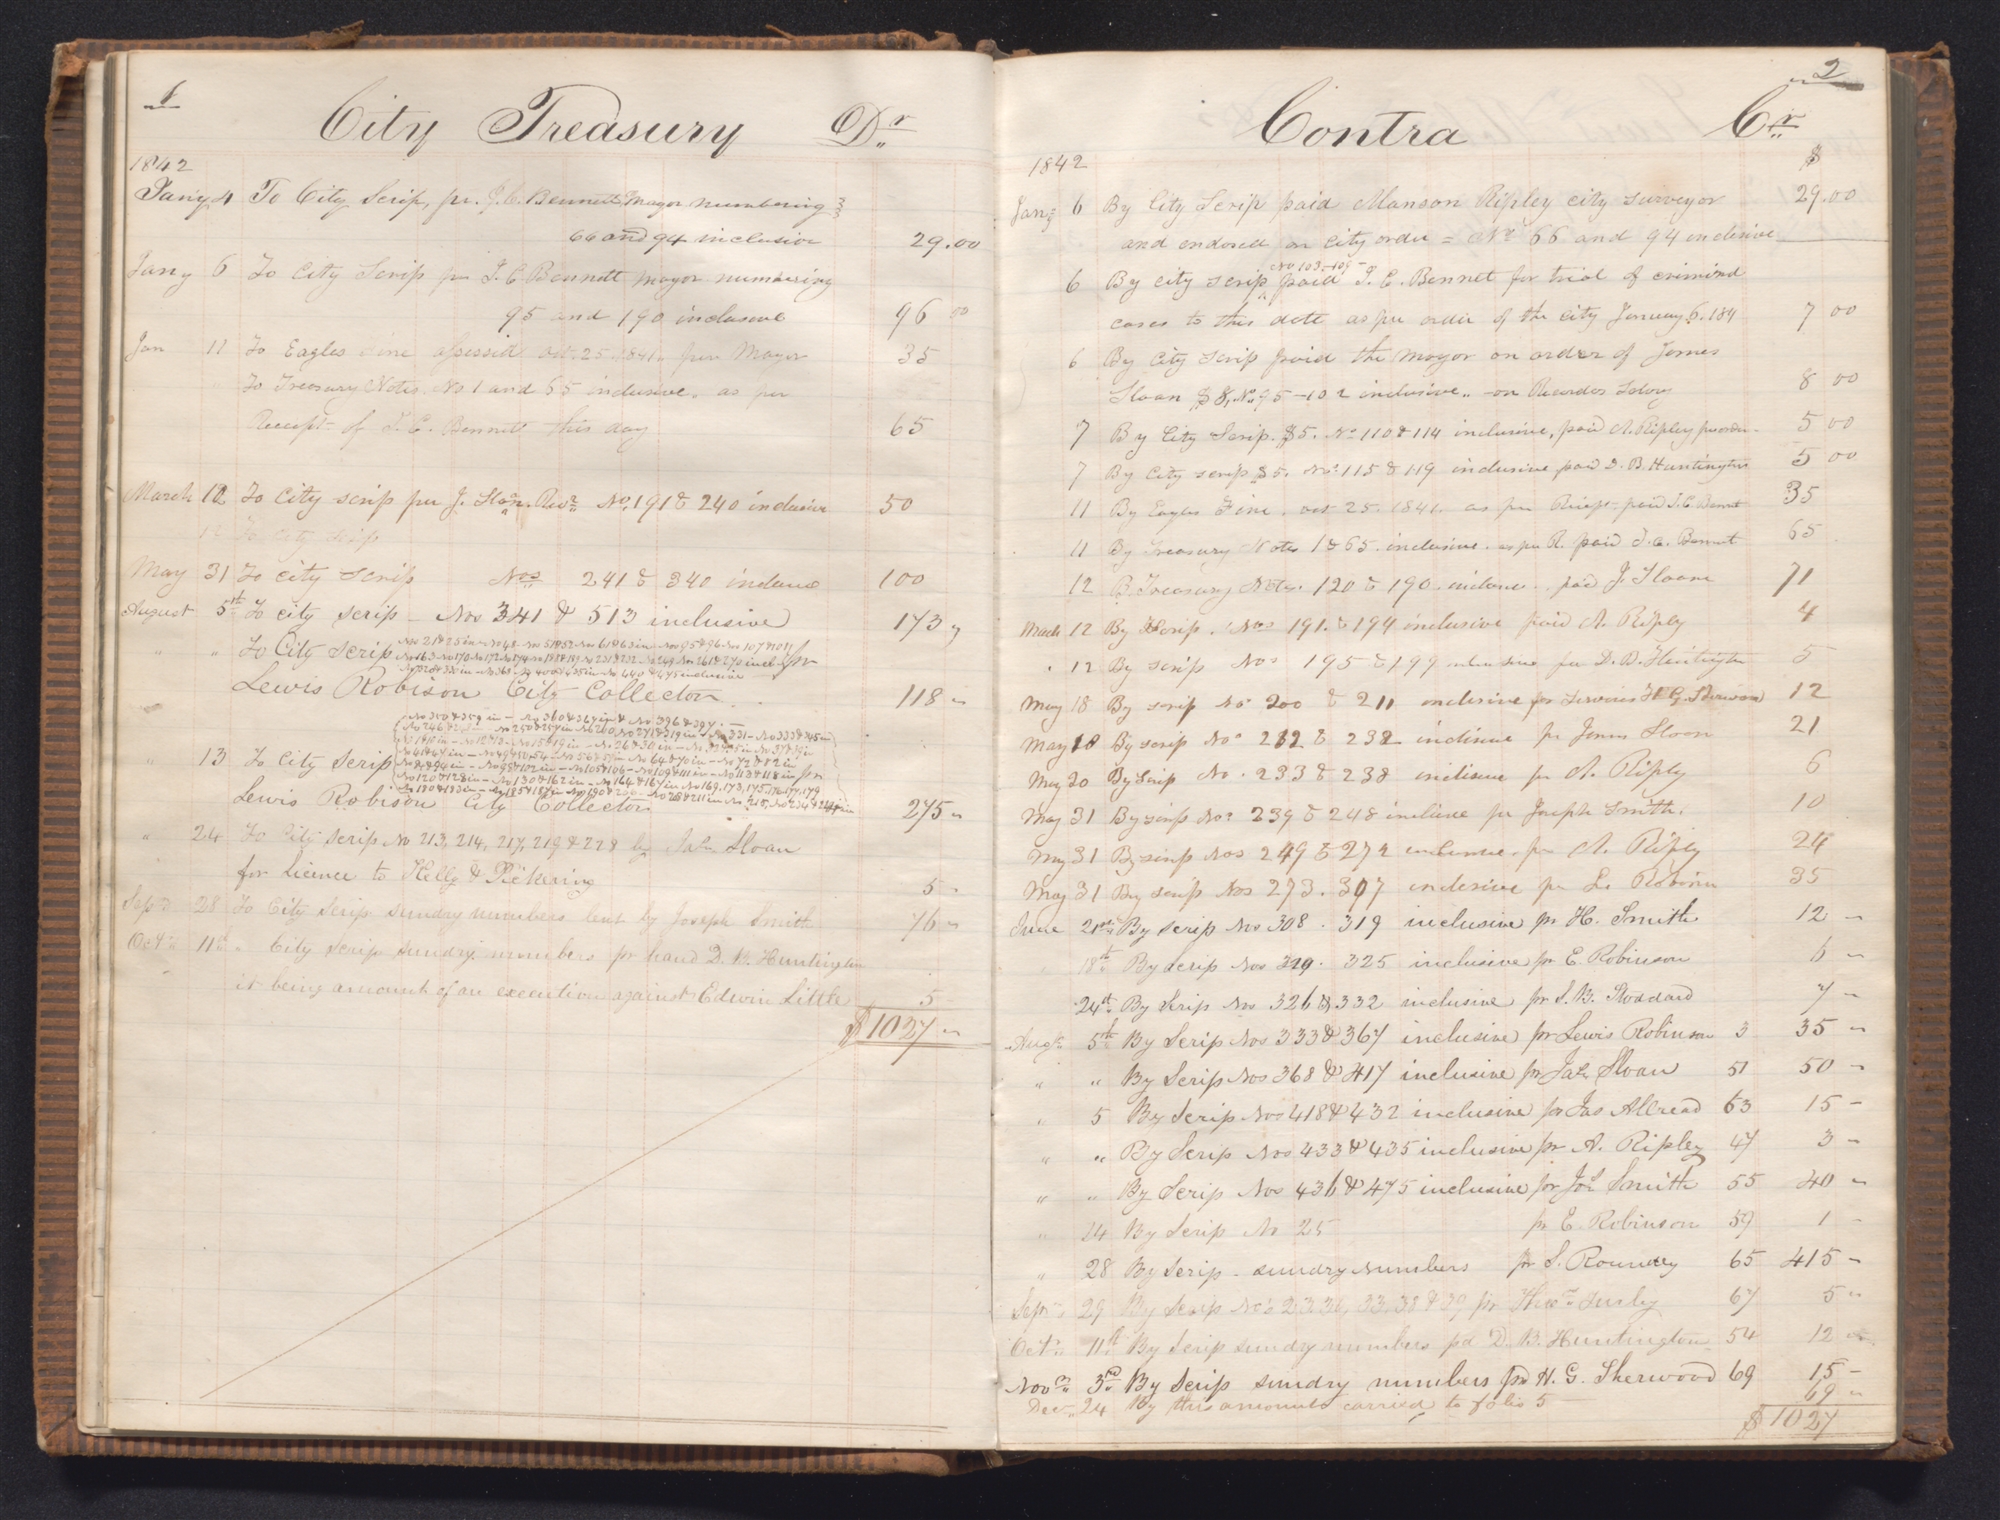 1
City Treasury Dr
1842
Jany 4 To City Scrip, pr. J. C. Bennett Mayor numbering
66 and 94 inclusive 29.00
Jany 6 To City Scrip per J. C Bennett mayor numbering
95 and 190 inclusive 96 00
Jan 11 To Eagles fine assessed oct 25. 1841. per Mayor 35
To Treasury Notes. No 1 and 65 inclusive. as per
Receipt of J. C. Bennett this day 65
March 12 To City scrip per J. Sloan. Recr No. 191 & 240 inclusive 50
12 To City scrip
May 31 To City scrip Nos 241 & 340 inclusive 100
August 5th To city scrip - Nos 341 & 513 inclusive 173 "
" " To City scrip pr
Lewis Robison City Collector 118 "
" 13 To City Scrip pr
Lewis Robison City Collector 275 "
" 24 To City Scrip No 213, 214, 217, 219 & 228 by Jas Sloan
for licence to Kelly & Pickering 5 "
Sept 28 To City Scrip sundry numbers lent by Joseph Smith 76 "
Octr 11th " City scrip sundry numbers pr hand D. B. Huntington
it being amount of an execution against Edwin Little 5
$1027 "
2
Contra Cr
1842 $
Jany 6 By City Scrip paid Alanson Ripley city surveyor 29.00
and endorsed on city order = No 66 and 94 inclusive
No 103-109
6 By city scrip paid J. C. Bennet for trial of criminal
cases to this date as per order of the city January 6. 184 7 00
6 By City scrip paid the Mayor on order of James
Sloan $8, No 95-102 inclusive,, on Recorders Salary 8 00
7 By City Scrip. $5. No 110 & 114 inclusive, paid A. Ripley per order 5 00
7 By City scrip $5. Nos 115 & 119 inclusive paid D. B. Huntington 5 00
11 By Eagles Fine. oct 25. 1841. as per Receipt paid J. C. Bennet 35
11 By Treasury Notes 1 & 65. inclusive. as per R. paid J. C. Bennet 65
12 By Treasury Notes. 120 & 190. inclusive. paid J. Sloan 71
March 12 By Scrip. Nos 191. & 194 inclusive paid A. Ripley 4
" 12 By scrip Nos 195 & 199 inclusive per D. B. Huntington 5
May 18 By scrip No 200 & 211 inclusive for services H G. Sherwood 12
May 18 By scrip Nos 212 & 232 inclusive pr James Sloan 21
May 20 By Scrip No. 233 & 238 inclusive pr A. Ripley 6
May 31 By scrip Nos 239 & 248 inclusive pr Joseph Smith. 10
May 31 By scrip Nos 249 & 272 inclusive. pr A. Ripley 24
May 31 By scrip Nos 273. 307 inclusive pr L. Robison 35
June 21st By scrip Nos 308. 319 inclusive pr H. Smith 12 "
" 18th By scrip Nos 320. 325 inclusive pr E. Robinson 6 "
24th By Scrip Nos 326 & 332 inclusive pr S. B. Stoddard 7 "
Augt 5th By Scrip Nos 333 & 367 inclusive pr Lewis Robinson 3 35 "
" " By Scrip Nos 368 & 417 inclusive pr Jas Sloan 51 50 "
" 5 By Scrip Nos 418 & 432 inclusive pr Jas Allread 63 15 -
" " By Scrip Nos 433 & 435 inclusive pr A. Ripley 47 3 "
" " By Scrip Nos 436 & 475 inclusive pr Jos Smith 55 40 "
" 14 By Scrip No 25 pr E. Robinson 59 1 -
" 28 By Scrip - sundry numbers pr S. Roundy 65 415 "
Septr 29 By Scrip Nos 33, 38 & 39 pr 67 5 "
Octr 11th By Scrip sundry numbers pd D. B. Huntington 54 12 "
Novr 3rd By Scrip sundry numbers pd H. G. Sherwood 69 15 -
Dec 24 By this amount carried to folio 5 69 "
$1027